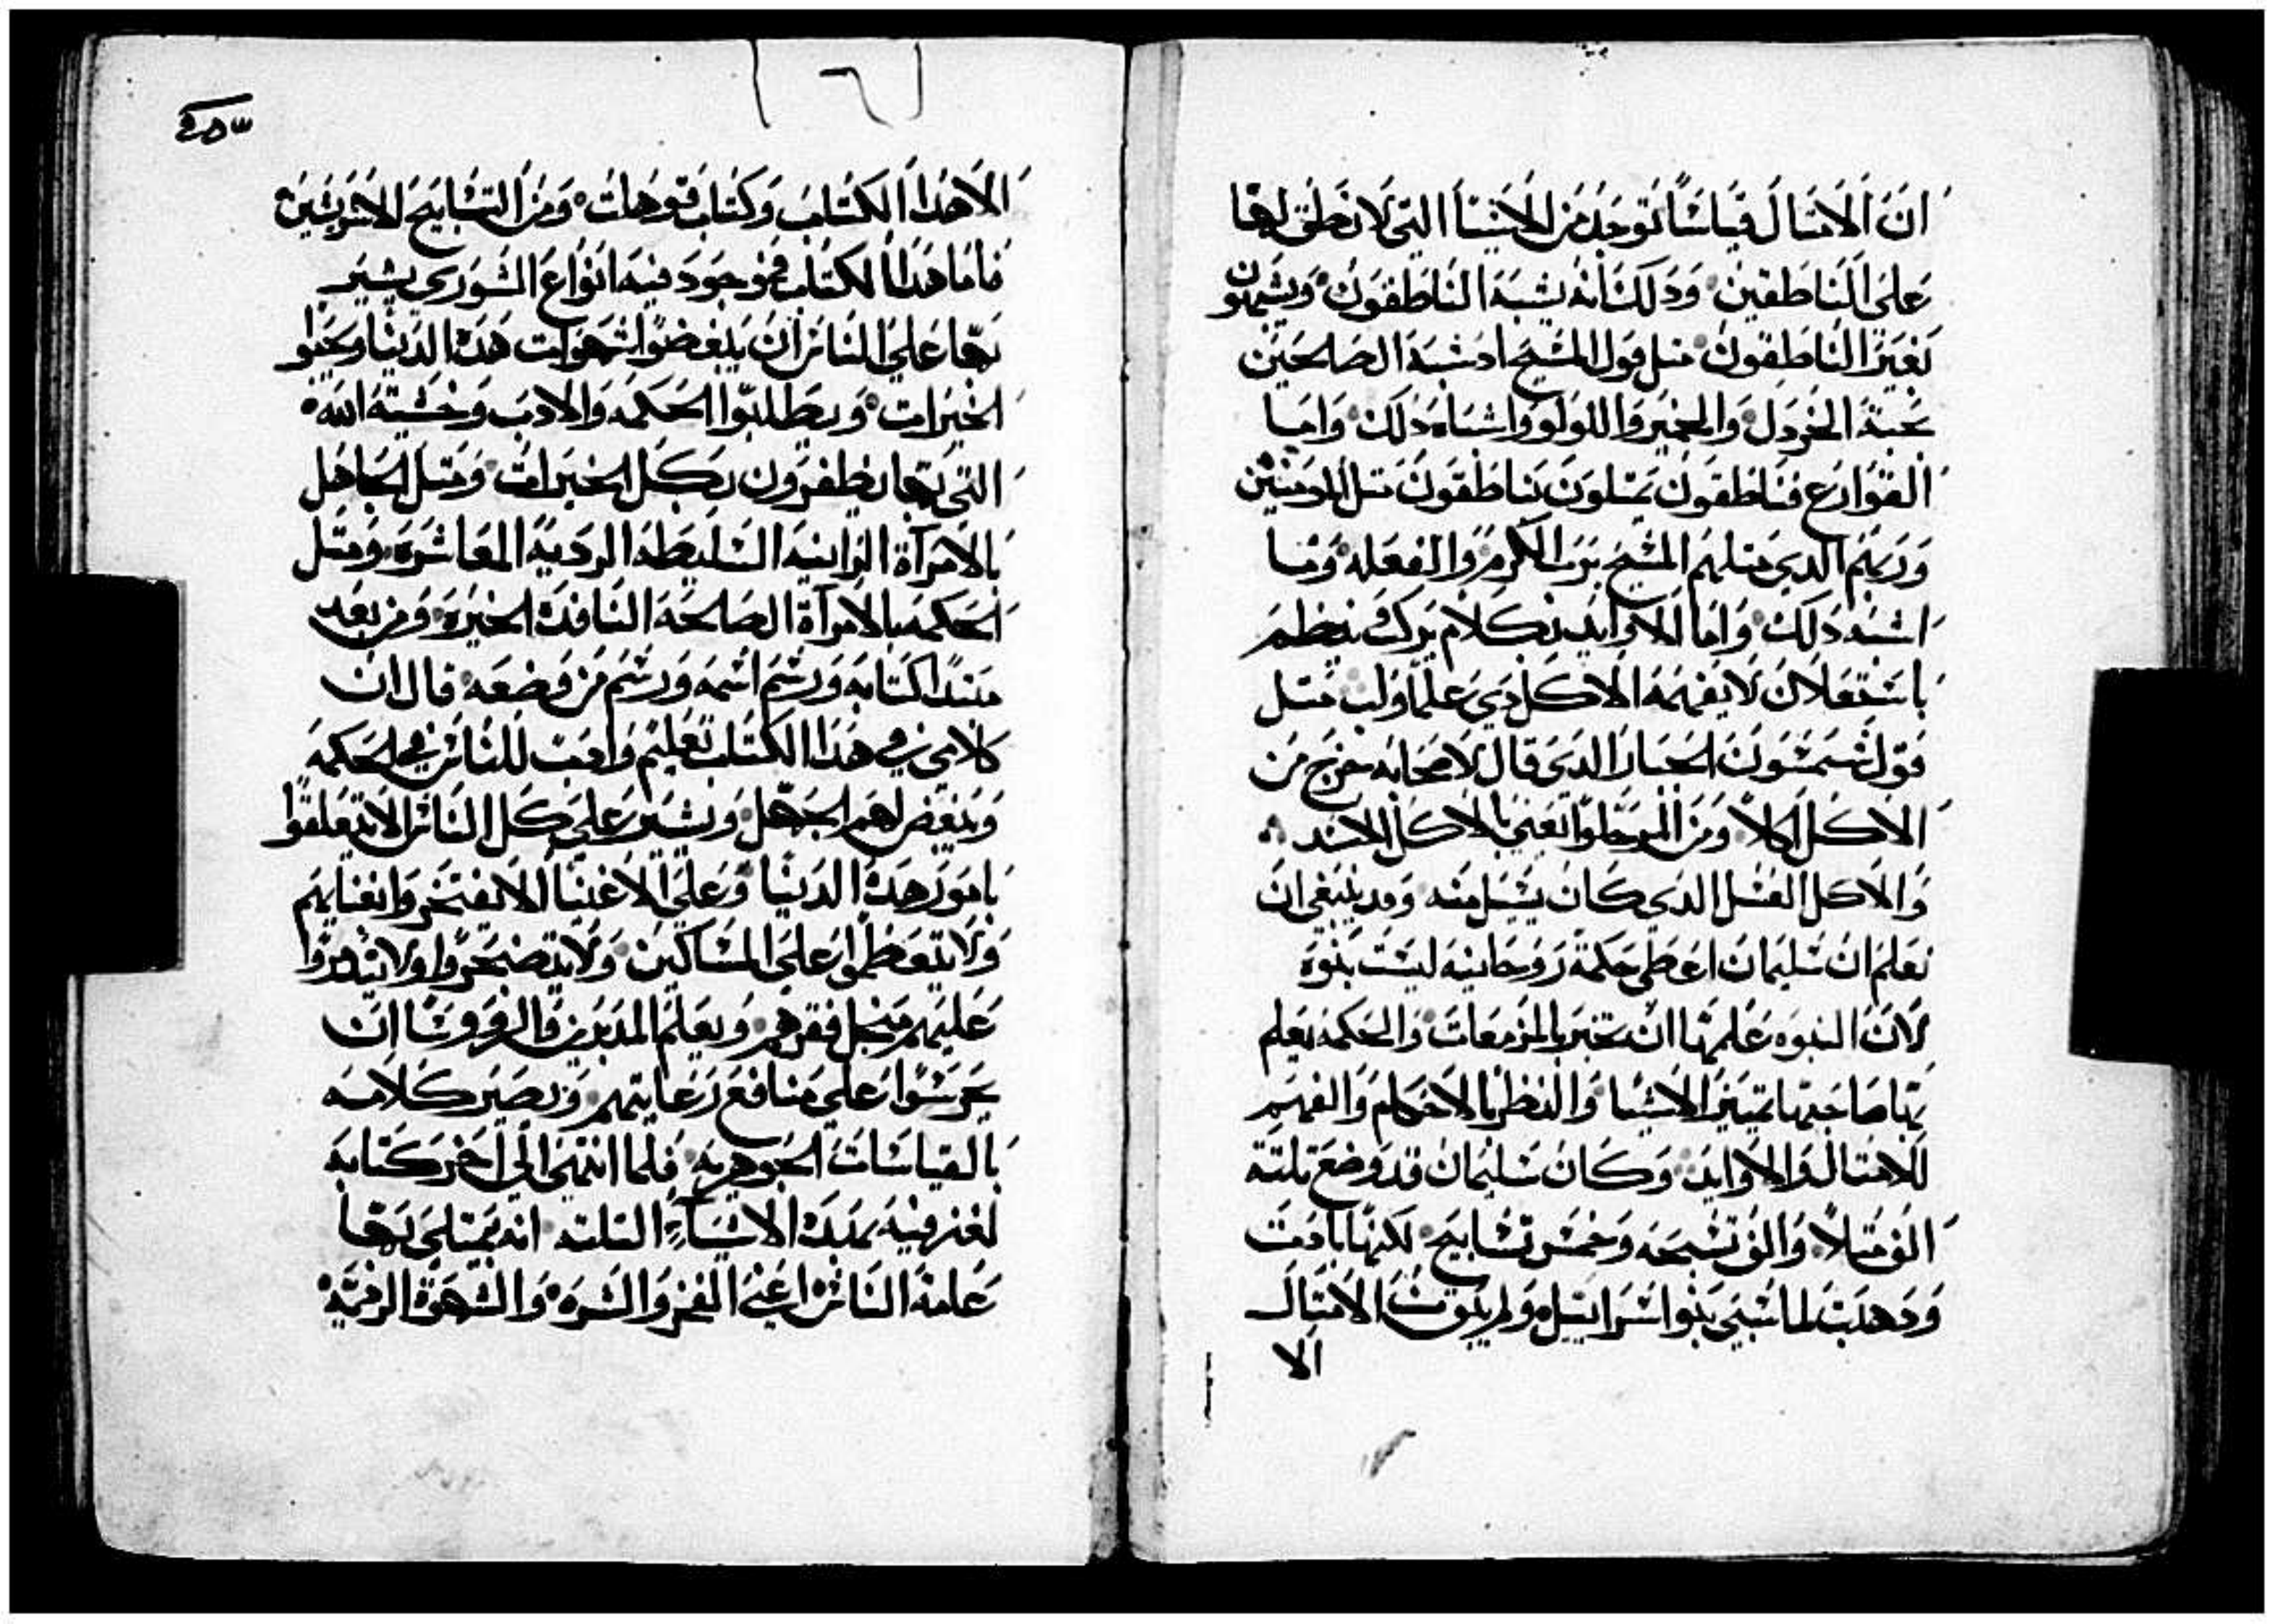 ان الامثال قياسًا توجد من الاشيا التي لا نطق لها
على الناطقين ودلك انه يشبه الناطقون ويشبهون
بغير الناطقون مثل قول المسيح اد شبه الصالحين
بحبة الخردل والخمير واللولو واشباه دلك واما
القوارع فناطقون يمثلون بناطقون مثل المومنين
وربهم الدي مثلهم المسيح برب الكرم والفعله وما
اشبه دلك واما الاوابد بكلام يركب بنظم
باستغلاق لا يفهمه الا كل دي علم ولب مثل
قول شمشون الجبار الدي قال لاصحابه خرج من
الاكل اكلاً ومن المر حلوًا يعني بالاكل الاسد
والاكل العسل الدي كان يسيل منه وقد ينبغي ان
نعلم ان سليمان اعطي حكمة روحانيه ليست بنوه
لان النبوه علمها ان تخبر بالمزمعات والحكمه يعلم
بها صاحبها تمييز الاشيا والنظر بالاحكام والفهم
للامثال والاوابد وكان سليمان قد وضع تلتة
الف مثلاً والف تسبحه وخمس تسابيح لكنها بادت
ودهبت لما سبي بنوا اسراييل ولم يبق من الامثال
الا
الا هدا الكتاب وكتاب قوهلت ومن التسابيح الاخرتين
فاما هدا الكتاب فموجود فيه انواع الشورى يشير
بها على الناس ان يبغضوا شهوات هده الدنيا ويحبوا
الخيرات ويطلبوا الحكمه والادب وخشية الله
التي بها يظفرون بكل الخيرات ومثل الجاهل
بالامرآة الزانيه السليطه الرديه المعاشره ومثل
الحكمه بالامرآة الصالحه النافده الخيره ومن بعد
مبتدا كتابه ورسم اسمه ورسم من وضعه قال ان
كلامي في هدا الكتاب تعليم وادب للناس في الحكمه
ويبغض لهم الجهل ويشير على كل الناس الا يتعلقوا
بامور هده الدنيا وعلى الاغنيا الا يفتخروا بغنايهم
ولا يتعظموا على المساكين ولا يتضجروا ولا يتدمروا
عليهم من اجل فقرهم ويعلم المدبرين والروسا ان
يحرسوا على منافع رعايتهم ويصير كلامه
بالقياسات الجوهريه فلما انتهى الى اخر كتابه
لغز فيه بهده الاشيآء التلته انه يمتلى بها
عامة الناس اعني الفخر والشره والشهوة الرخيه